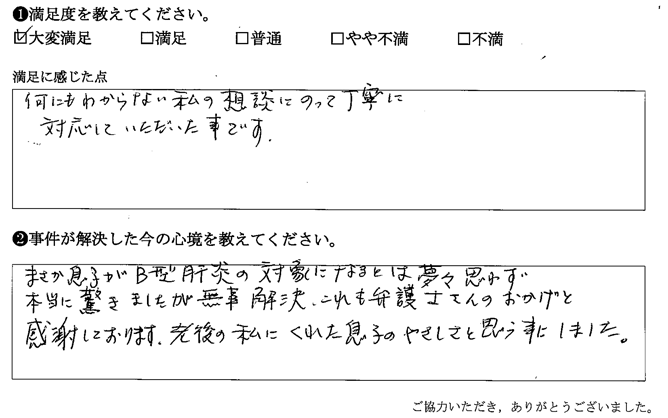 ❶満足度を教えてください。
☑大変満足 □満足 □普通 □やや不満 □不満
満足に感じた点
何にもわからない私の想談にのって丁寧に
対応していただいた事です.
❷事件が解決した今の心境を教えてください。
まさか息子がB型肝炎の対象になるとは夢々思わず
本当に驚きましたが無事解決、これも弁護士さんのおかげと
感謝しております。老後の私にくれた息子のやさしさと思う事にしました。
ご協力いただき，ありがとうございました。